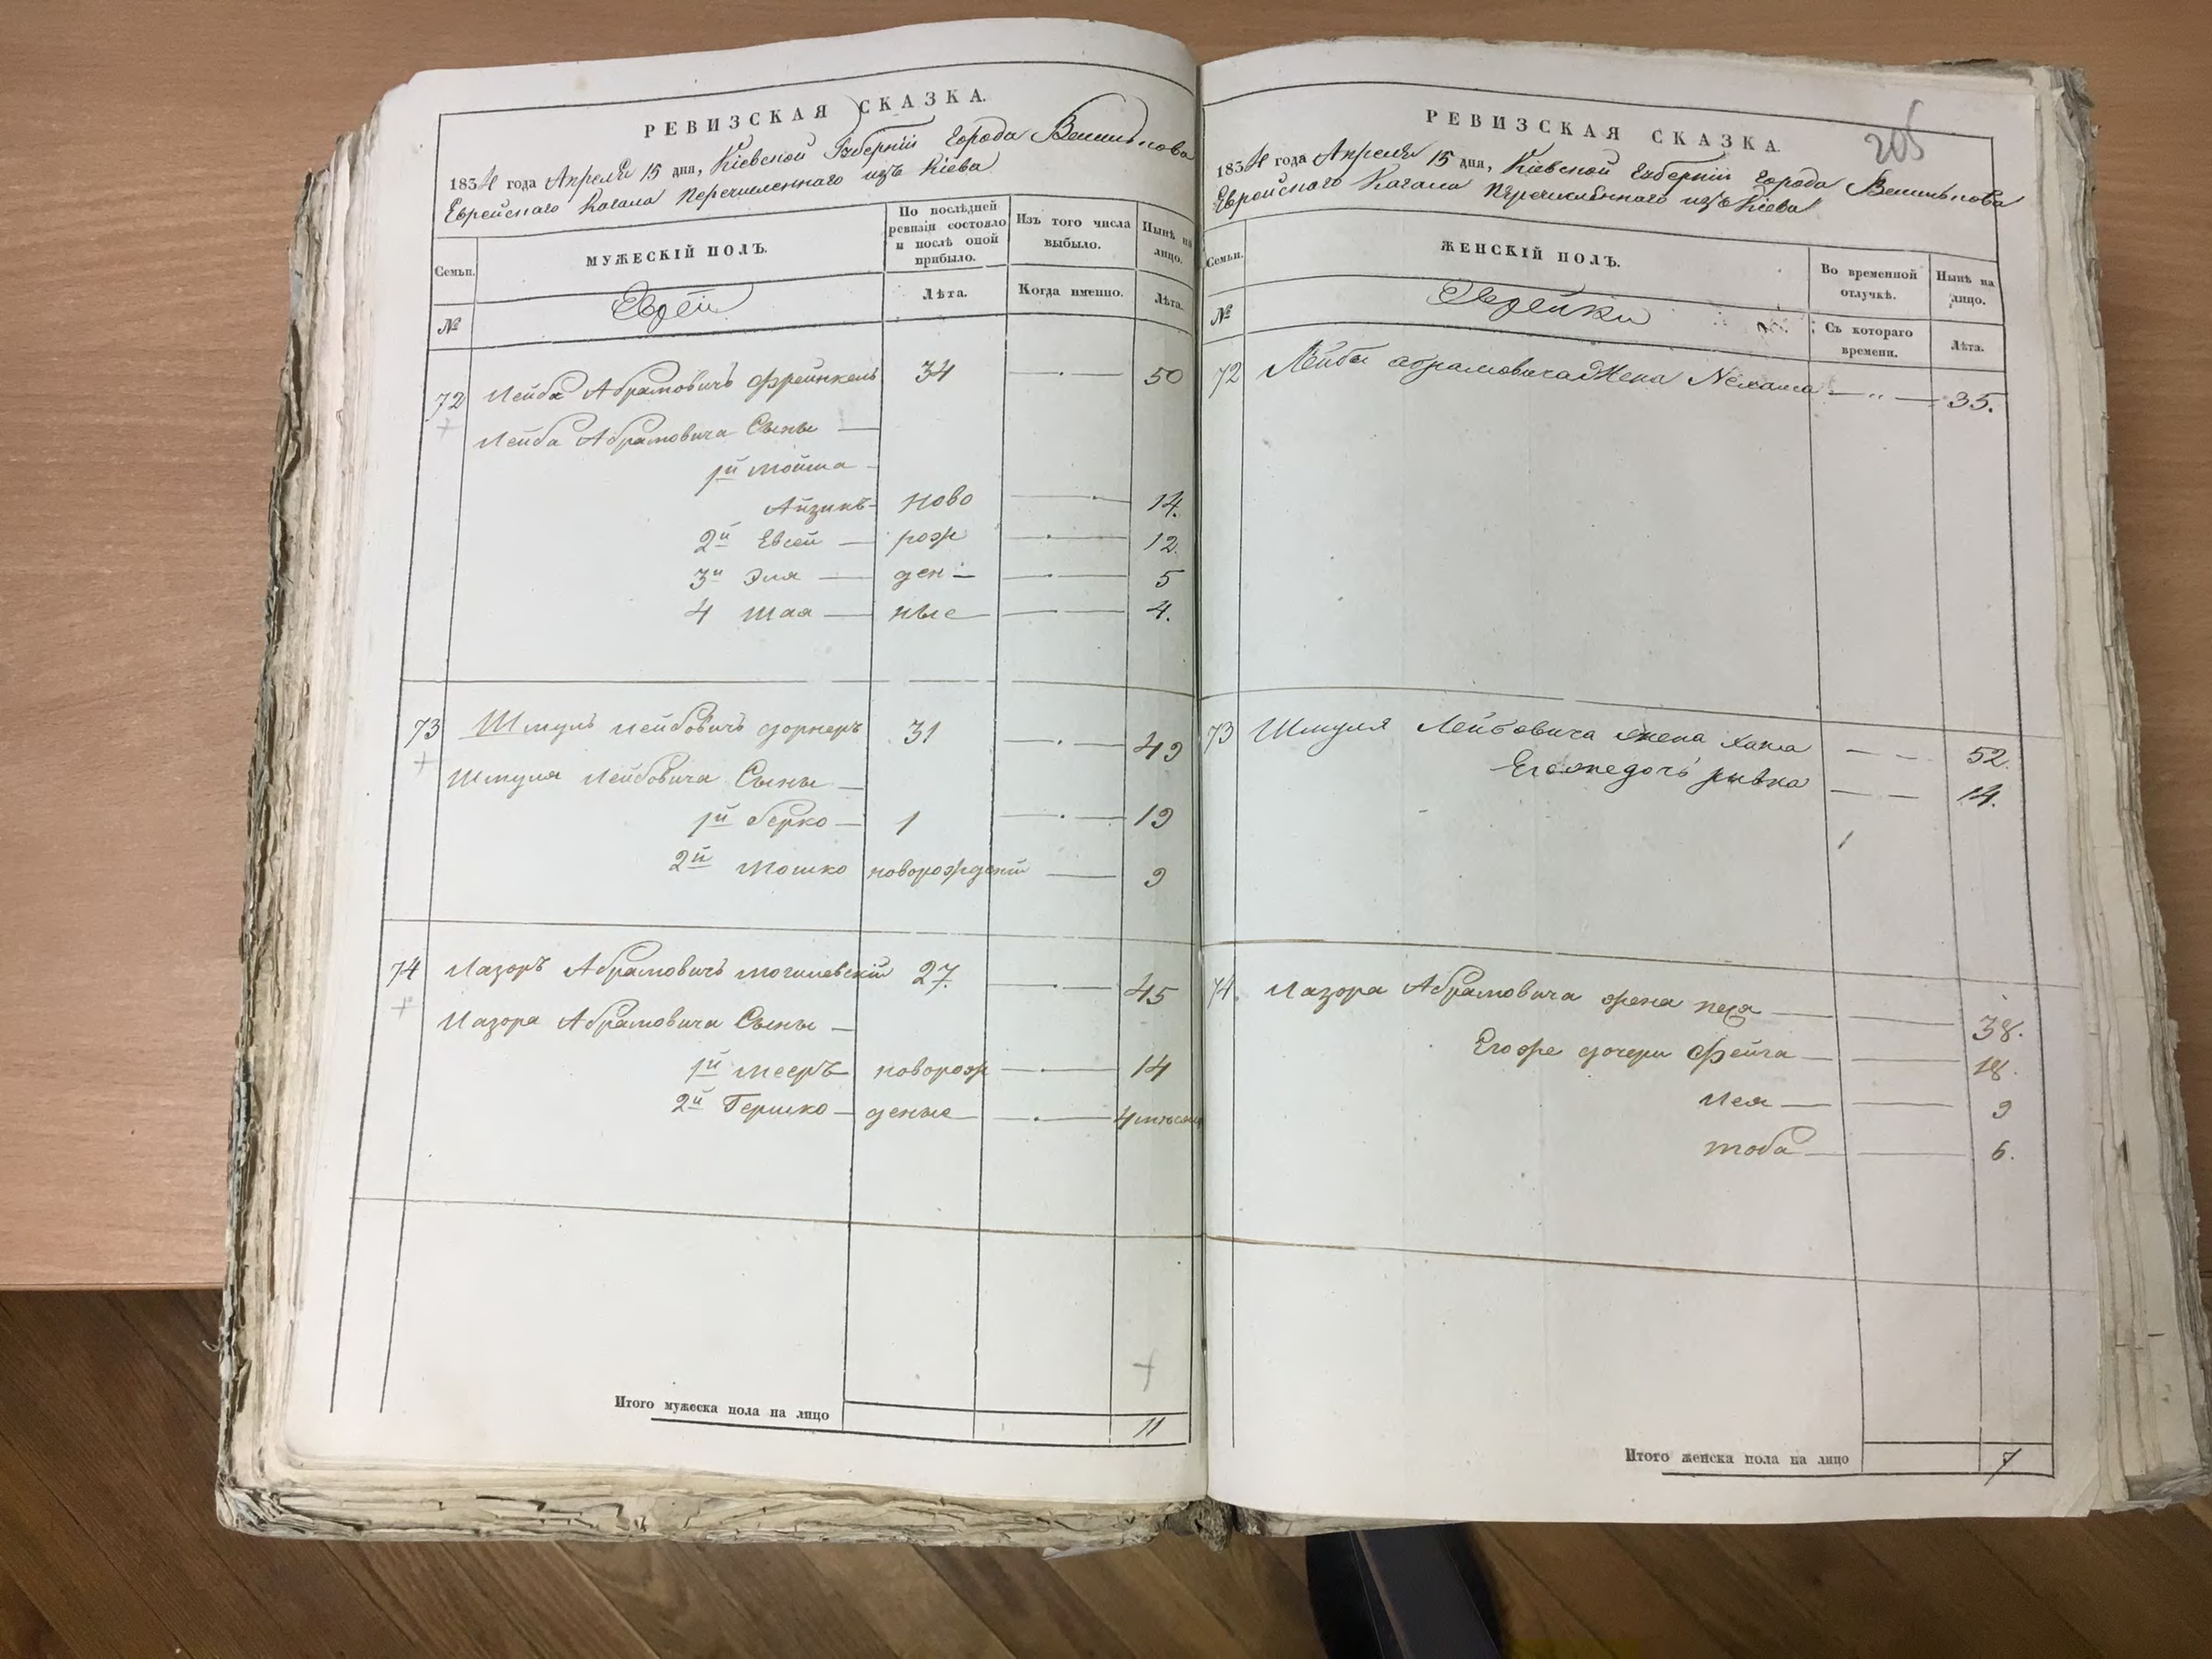 РЕВИЗСКАЯ СКАЗКА.
1834 года Апреля 15 дня, Кіевской Губерніи Города Василькова
Еврейскаго Кагала перечисленнаго изъ Кіева
Семьи.
МУЖЕСКІЙ ПОЛЪ.
По послѣдней ревизіи состояло и послѣ оной прибыло.
Изъ того числа выбыло.
Нынѣ на лицо.
№
Евреи
Лѣта.
Когда именно.
Лѣта.
72 Лейба Абрамовичъ Френкель 34 50
Лейба Абрамовича Сыны
1й Мойша
Айзикъ ново 14.
2й Евсей рож 12.
3й Эля ден 5
4 Шая ные 4.
73 Шмуль Лейбовичъ 31 49
Шмуля Лейбовича Сыны
1й Берко 1 19
2й Мошко новорожденый 9
74 Лазоръ Абрамовичъ Могилевскій 27. 45
Лазора Абрамовича Сыны
1й Мееръ новорож 14
2й Гершко деные 4 мѣсяца
Итого мужеска пола на лицо 11
205
РЕВИЗСКАЯ СКАЗКА.
1834 года Апреля 15 дня, Кіевской Губерніи Города Василькова
Еврейскаго Кагала перечисленнаго изъ Кіева
Семьи.
ЖЕНСКІЙ ПОЛЪ.
Во временной отлучкѣ.
Нынѣ на лицо.
№
Еврейки
Съ котораго времени.
Лѣта.
72 Лейбы Абрамовича Жена Нехама 35.
73 Шмуля Лейбовича жена Хана 52.
Его же дочь Ривка 14.
74. Лазора Абрамовича жена Песя 38.
Его же дочери Фейга 18.
Лея 9
Тоба 6.
Итого женска пола на лицо 7